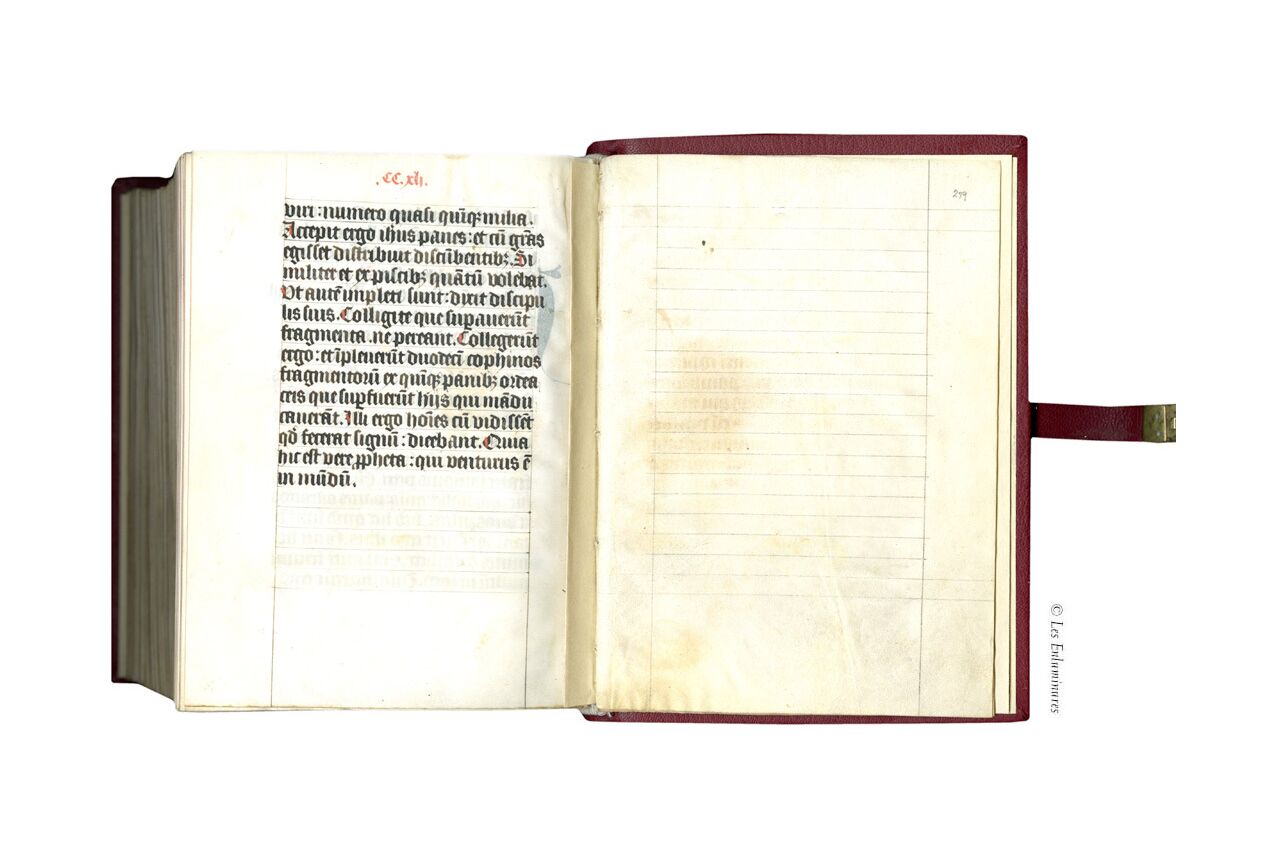 .CC.xli.
viri : numero quasi quīqꝫ milia.
Accepit ergo ihus panes : et cū gr̄as
egisset distribuit discūbentibꝫ. Si
militer et ex piscibꝫ quātū volebat.
Vt autē impleti sunt : dixit discipu
lis suis. Colligite que suꝑauerūt
fragmenta .ne pereant. Collegerūt
ergo : et īpleuerūt duodecī cophinos
fragmentorū ex quīqꝫ panibꝫ ordea
ceis que suꝑfuerūt hijs qui mādu
cauerāt. Illi ergo hoīes cū vidissēt
qd̄ fecerat signū : dicebant. Quia
hic est vere ꝓpheta : qui venturus ē
in mūdū.
279
© Les Enluminures